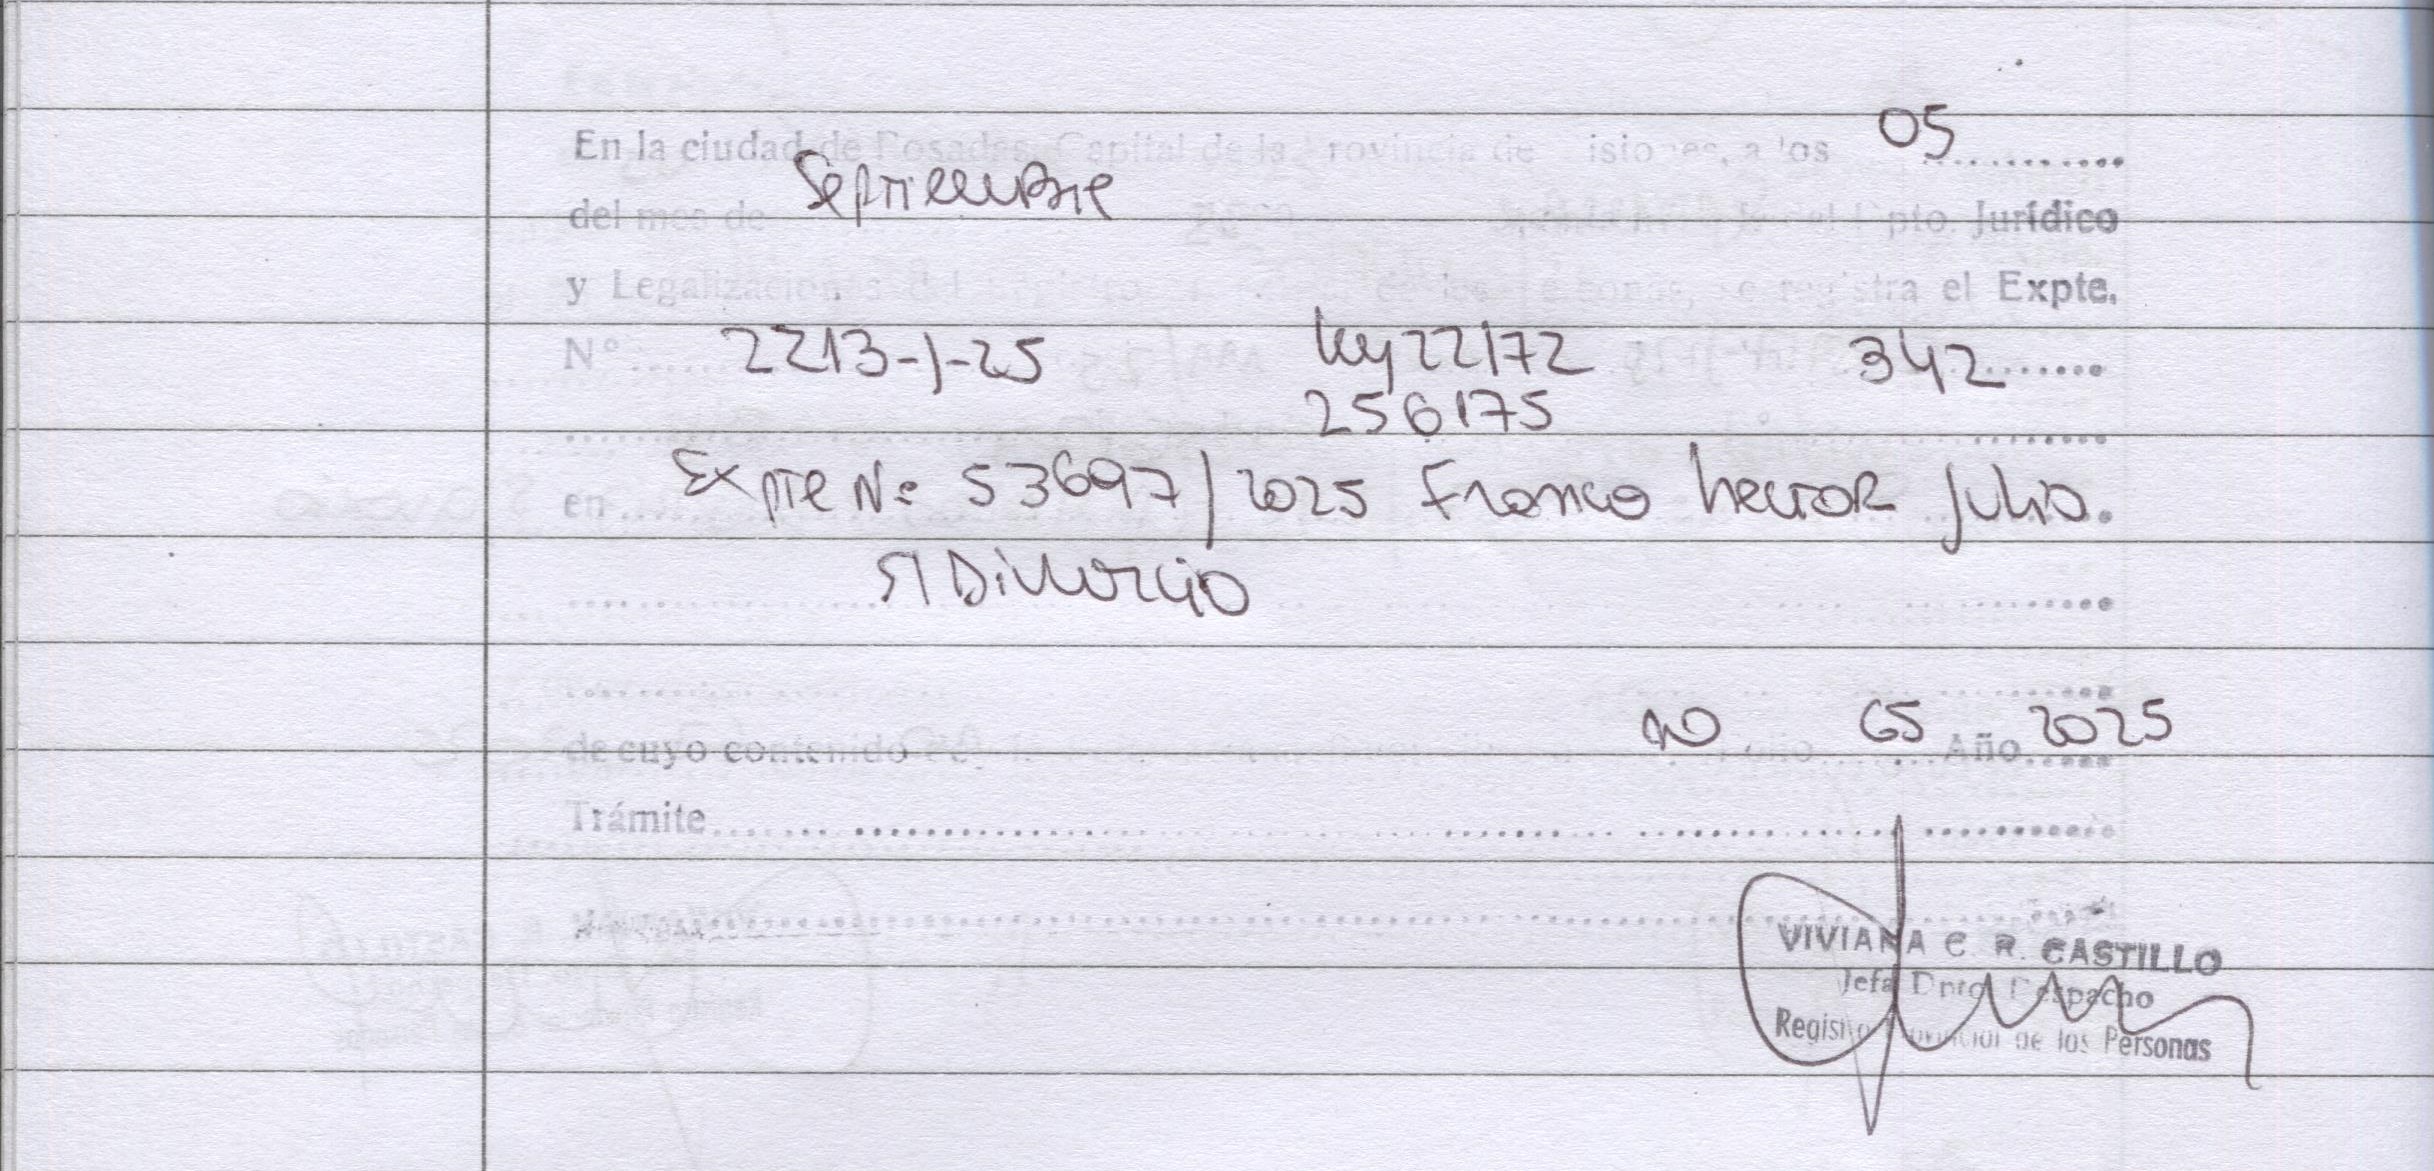 En la ciudad de Posadas, Capital de la Provincia de isiones, a los 05
del mes de Septiembre Dpto. Jurídico
y Legalizaciones del de las Personas, se registra el Expte.
Nº 2213-J-25 Ley 22172 342
256175
en Expte Nº 53697/2025 Franco hector Julio.
S/ Divorcio
de cuyo contenido NO Folio 65 Año 2025
Trámite
VIVIANA C. R. CASTILLO
Jefa Dpto. Despacho
Registro Provincial de las Personas